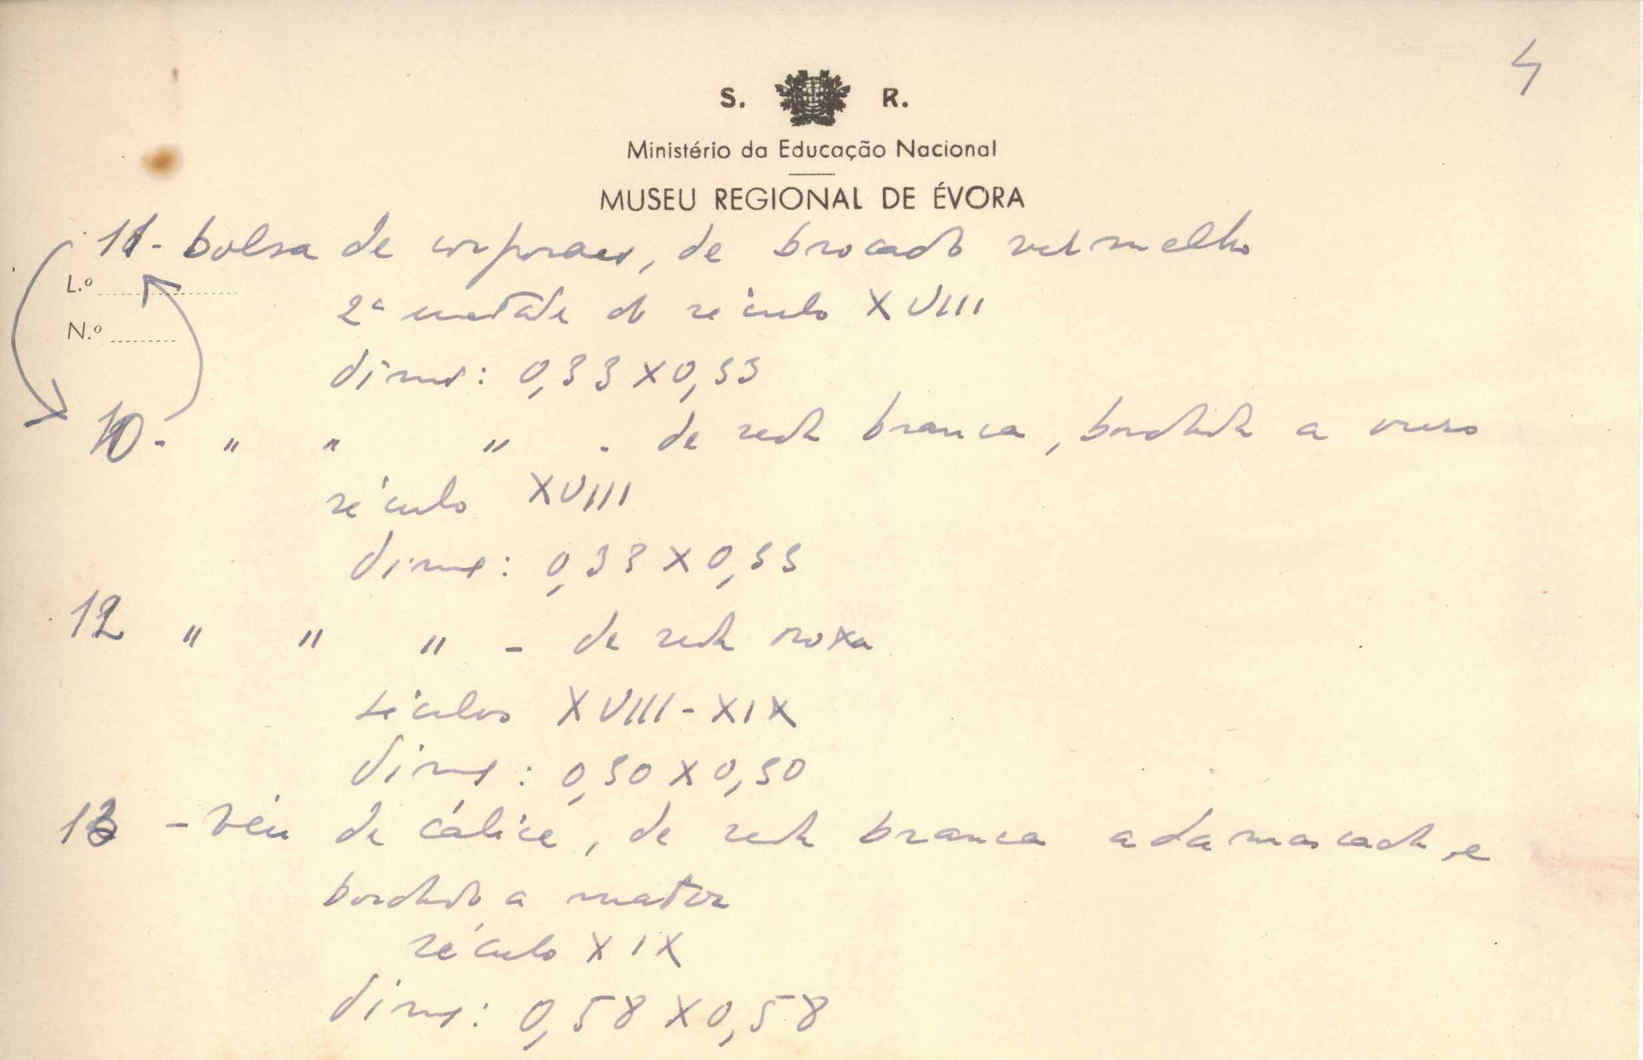 4
S. R.
Ministério da Educação Nacional
MUSEU REGIONAL DE ÉVORA
11 - bolsa de corporaes, de brocado vermelho
L.º
2ª metade do século XVIII
N.º
dims: 0,33 X 0,33
10 - " " " - de seda branca, bordada a ouro
século XVIII
dims: 0,33 X 0,33
12 " " " - de seda roxa
séculos XVIII - XIX
dims: 0,30 X 0,30
13 - véu de cálice, de seda branca adamascada e
bordado a matiz
século XIX
dims: 0,58 X 0,58